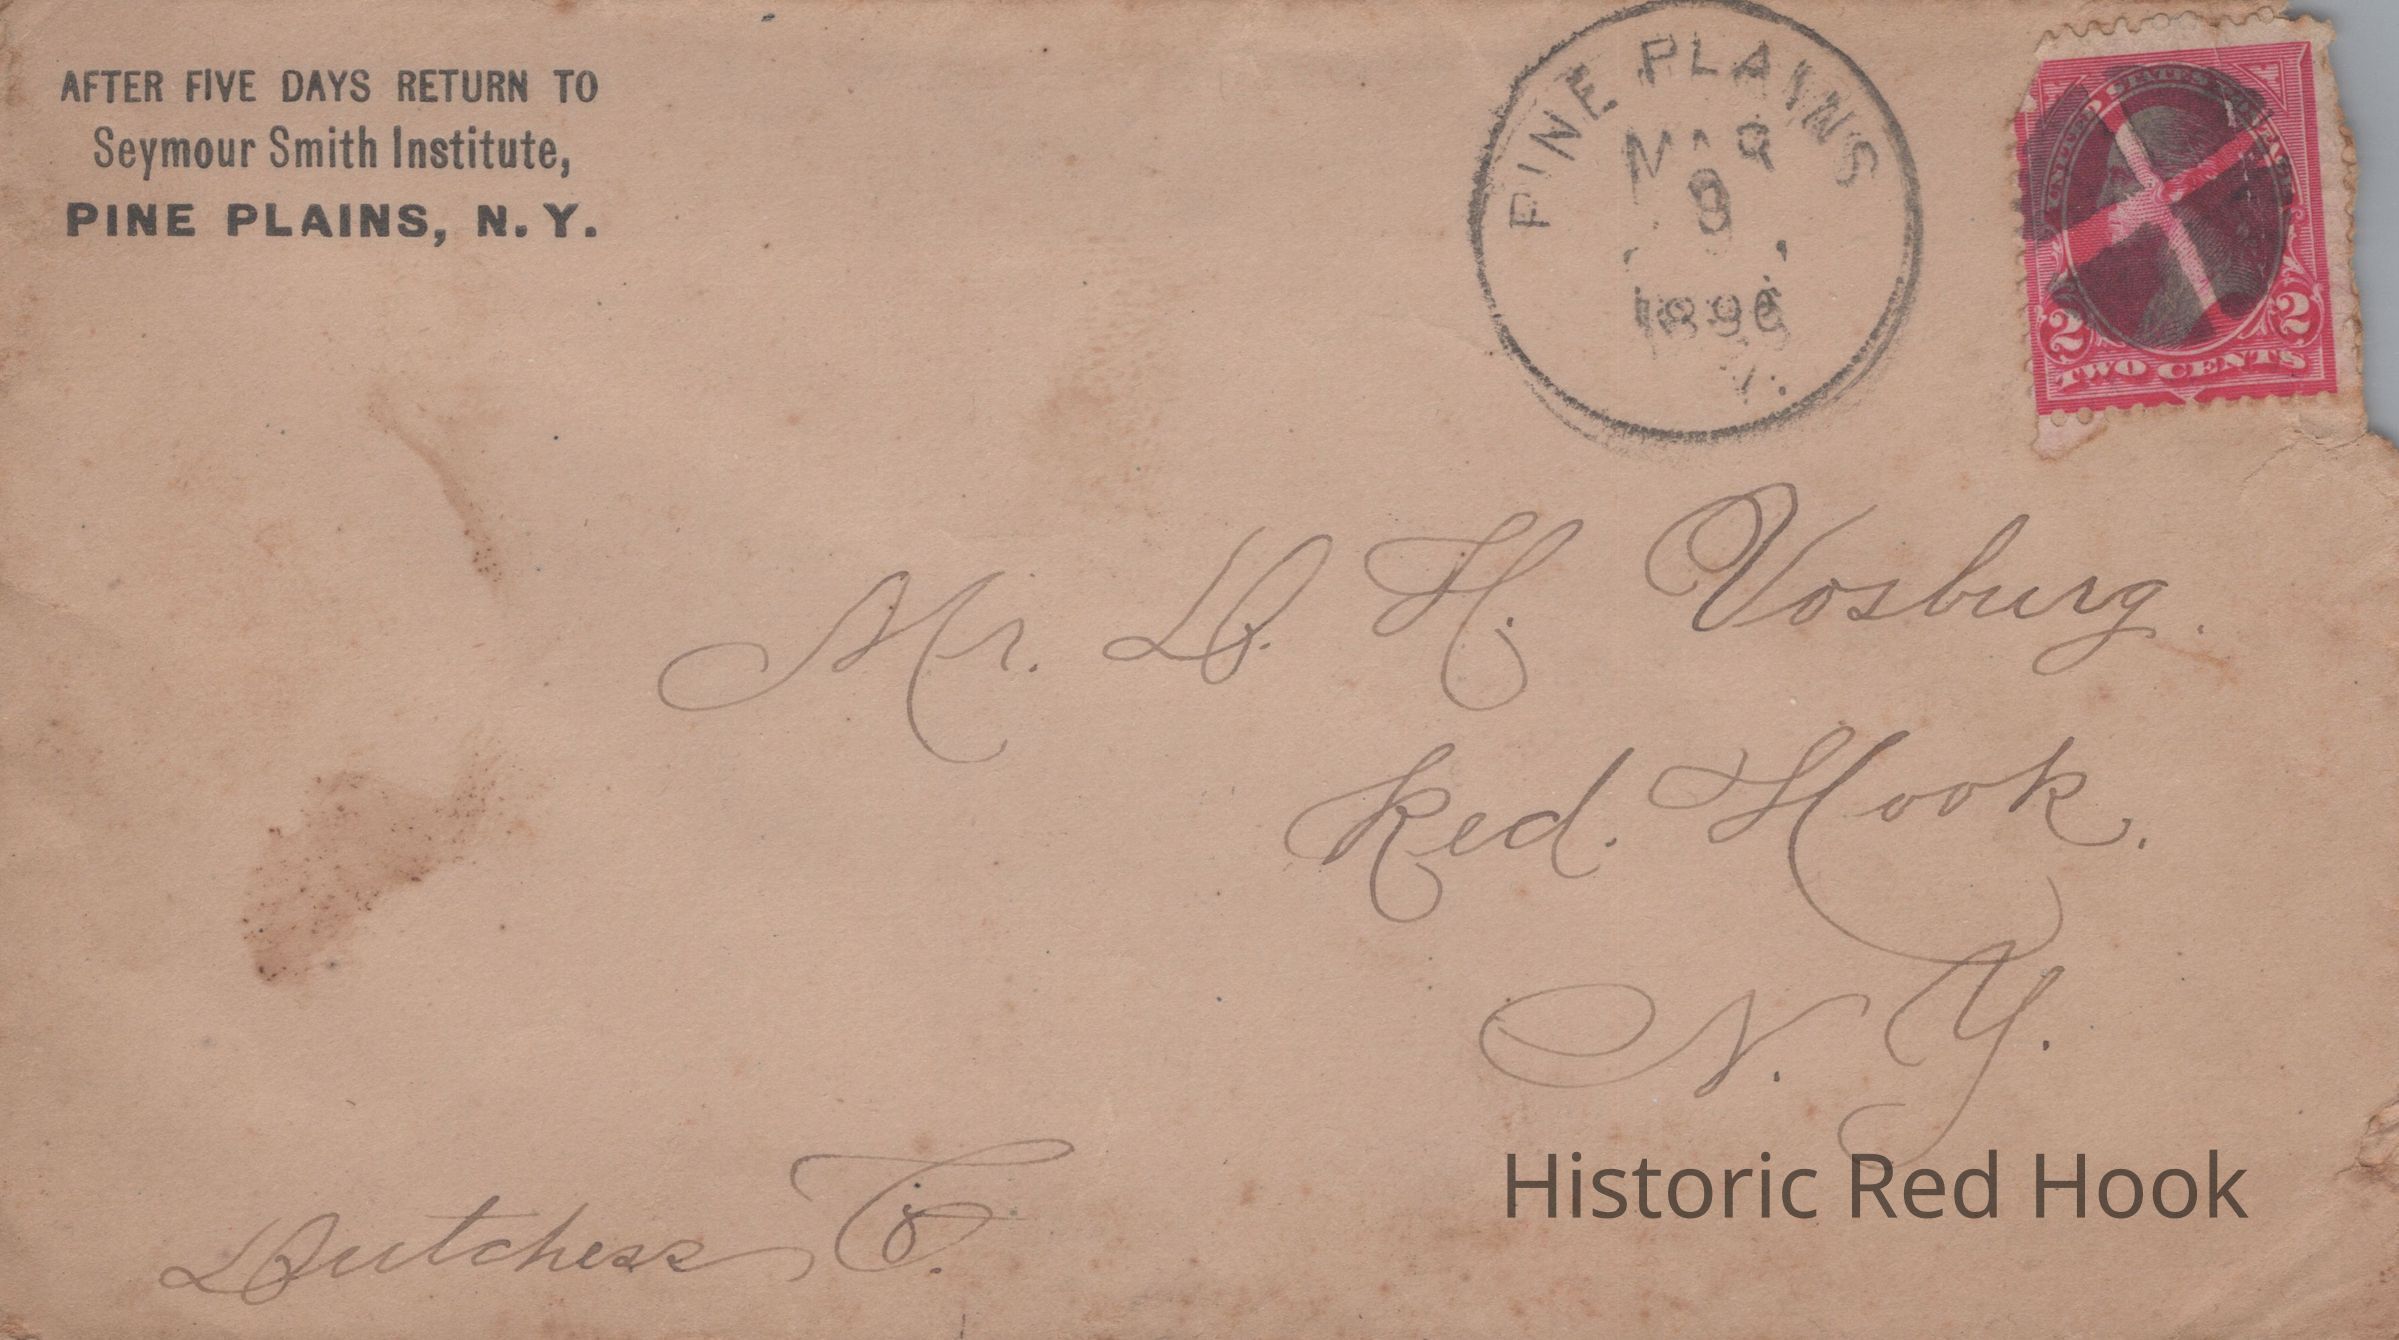 AFTER FIVE DAYS RETURN TO
Seymour Smith Institute,
PINE PLAINS, N. Y.
PINE PLAINS
MAR
9
1896
Y.
UNITED STATES
2 2
TWO CENTS
Mr. D. H. Vosburg.
Red. Hook.
N. Y.
Dutchess Co.
Historic Red Hook